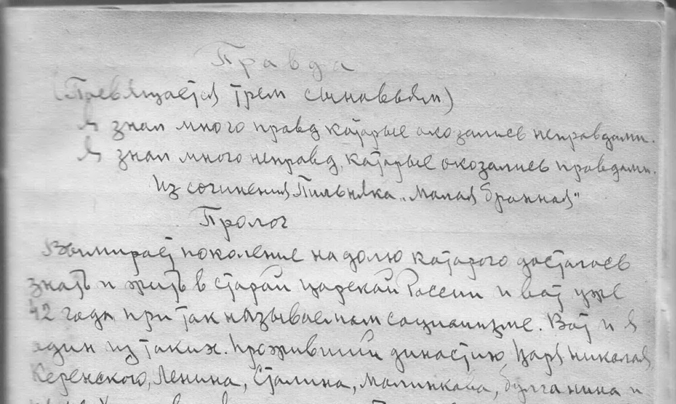 Правда
(Посвящается трем сыновьям)
Я знал много правд катарые оказались неправдами.
Я знал много неправд, катарые оказались правдами.
Из сочинения Пильняка „Малая бранная"
Пролог
Вымирает поколение на долю катарого досталось
знать и жить в старай царскай России и вот уже
42 года при так называемам социализме. Вот и я
один из таких. Проживший династию, Царя Николая,
Керенского, Ленина, Сталина, Малинкова, Булганина и